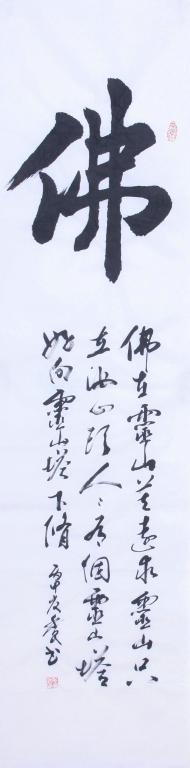 佛
佛在靈山莫遠求靈山只
在汝心頭人〻有個靈山塔
好向靈山塔下修